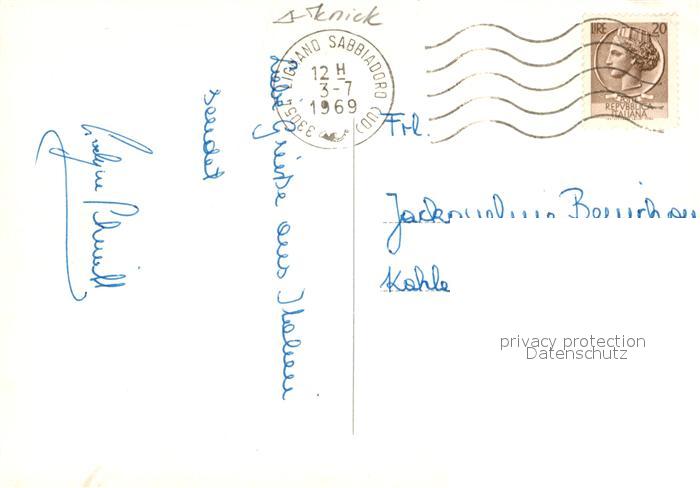 knick
33054 LIGNANO SABBIADORO (UD)
12 H
3-7
1969
LIRE 20
REPVBBLICA
ITALIANA
Liebe Grüße aus Italien
sendet
Evelyne
Frl.
Kahle
privacy protection
Datenschutz